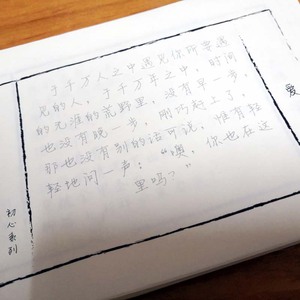 于千万人之中遇见你所要遇
见的人，于千万年之中，时间
的无涯的荒野里，没有早一步，
也没有晚一步，刚巧赶上了，
那也没有别的话可说，惟有轻
轻地问一声：“噢，你也在这
里吗？”
爱
初心系列